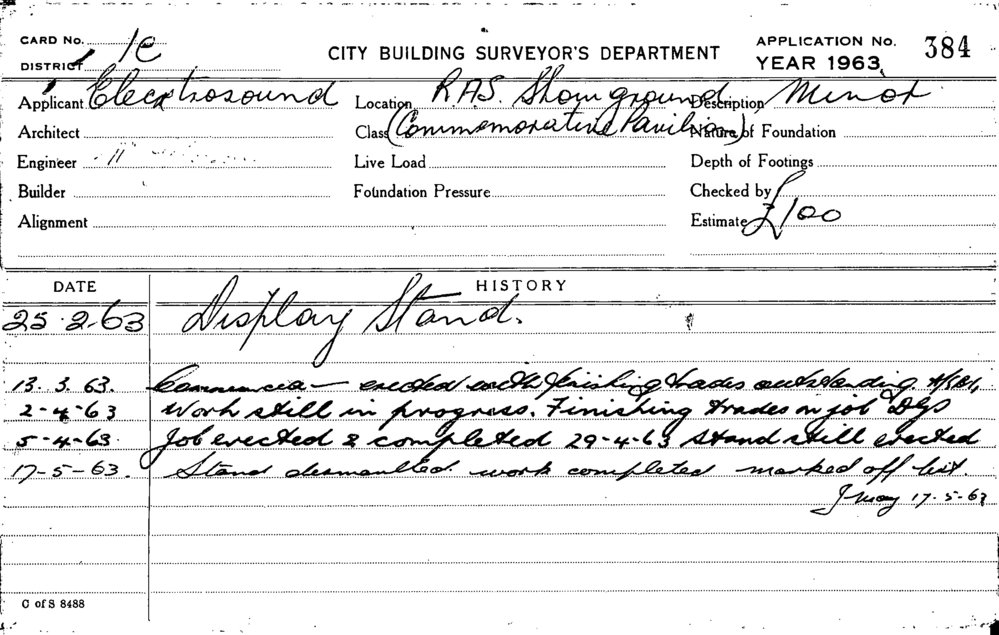 CARD No. 1C
DISTRICT
CITY BUILDING SURVEYOR'S DEPARTMENT
APPLICATION No. 384
YEAR 1963
Applicant Electrosound Location RAS. Showground Description Minor
Architect Class (Commemorative Pavilion) Nature of Foundation
Engineer " Live Load Depth of Footings
Builder Foundation Pressure Checked by
Alignment Estimate £100
DATE HISTORY
25.2.63 Display Stand.
13.3.63. erected with finishing trades outstanding.
2-4-63 Work still in progress. Finishing trades on job DGS
5-4-63. Job erected & completed 29-4-63 stand still erected
17-5-63. Stand dismantled. work completed marked off list.
J May 17-5-63
C of S 8488